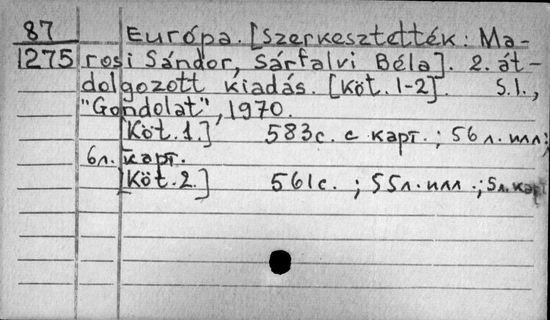 87 Európa. [Szerkesztették: Ma-
1275 rosi Sándor, Sárfalvi Béla]. 2. át-
dolgozott kiadás. [Köt. 1-2]. S.l.,
"Gondolat", 1970.
[Köt. 1.] 583с. с карт.; 56 л. илл;
6 л. карт.
[Köt. 2.] 561с.; 55 л. илл.; 5 л. карт